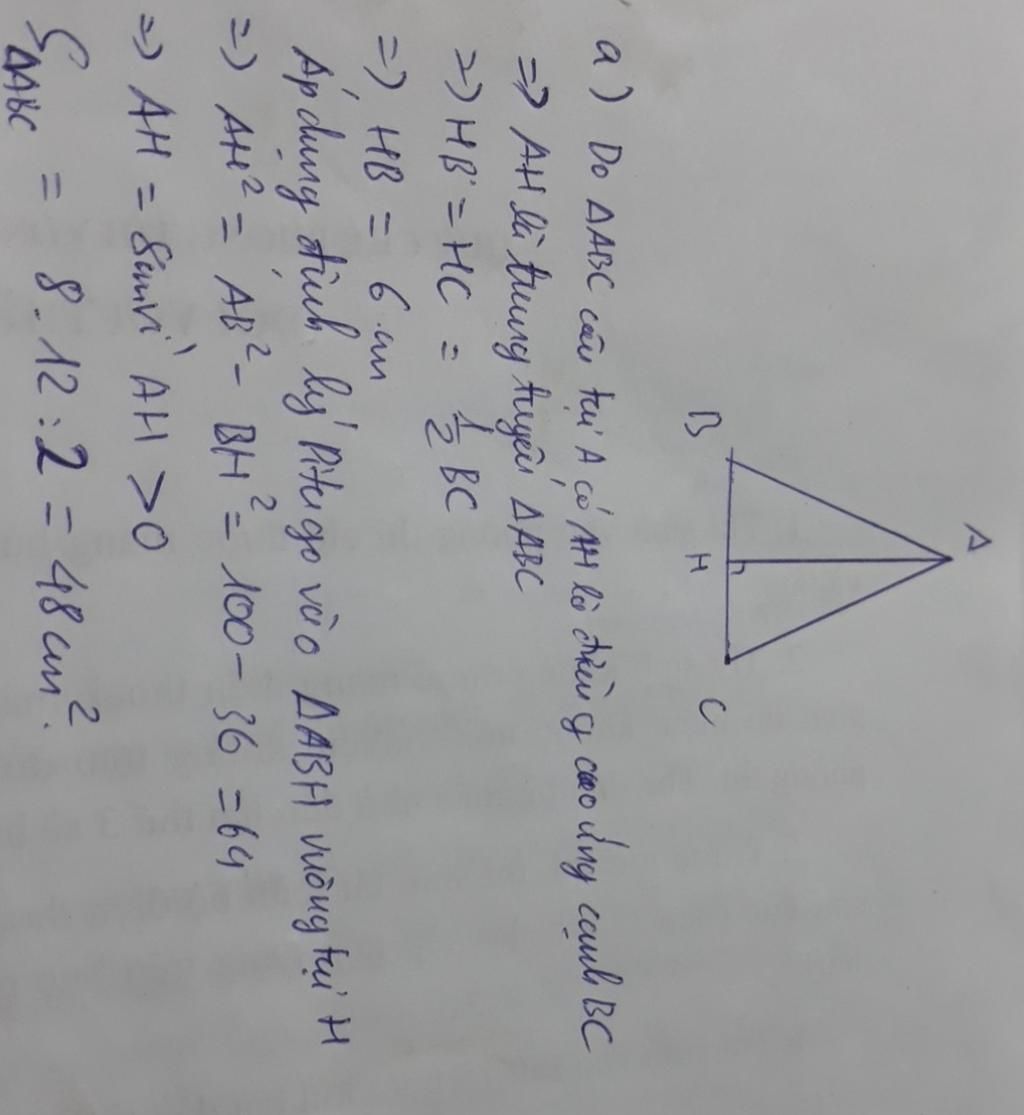 A
B
H
C
a) Do ΔABC cân tại A có AH là đường cao ứng cạnh BC
=> AH là trung tuyến ΔABC
=> HB = HC = 1/2 BC
=> HB = 6 cm
Áp dụng định lý Pitago vào ΔABH vuông tại H
=> AH² = AB² - BH² = 100 - 36 = 64
=> AH = 8cm vì AH > 0
S ΔABC = 8 . 12 : 2 = 48 cm².